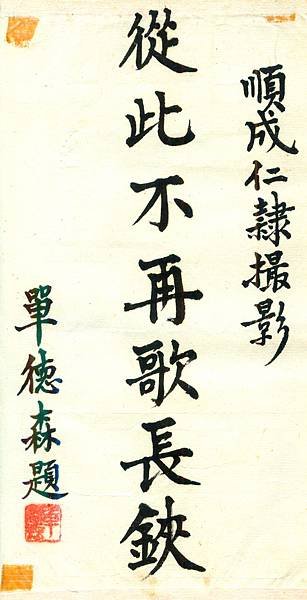 順成仁隸撮影
從此不再歌長鋏
單德森題